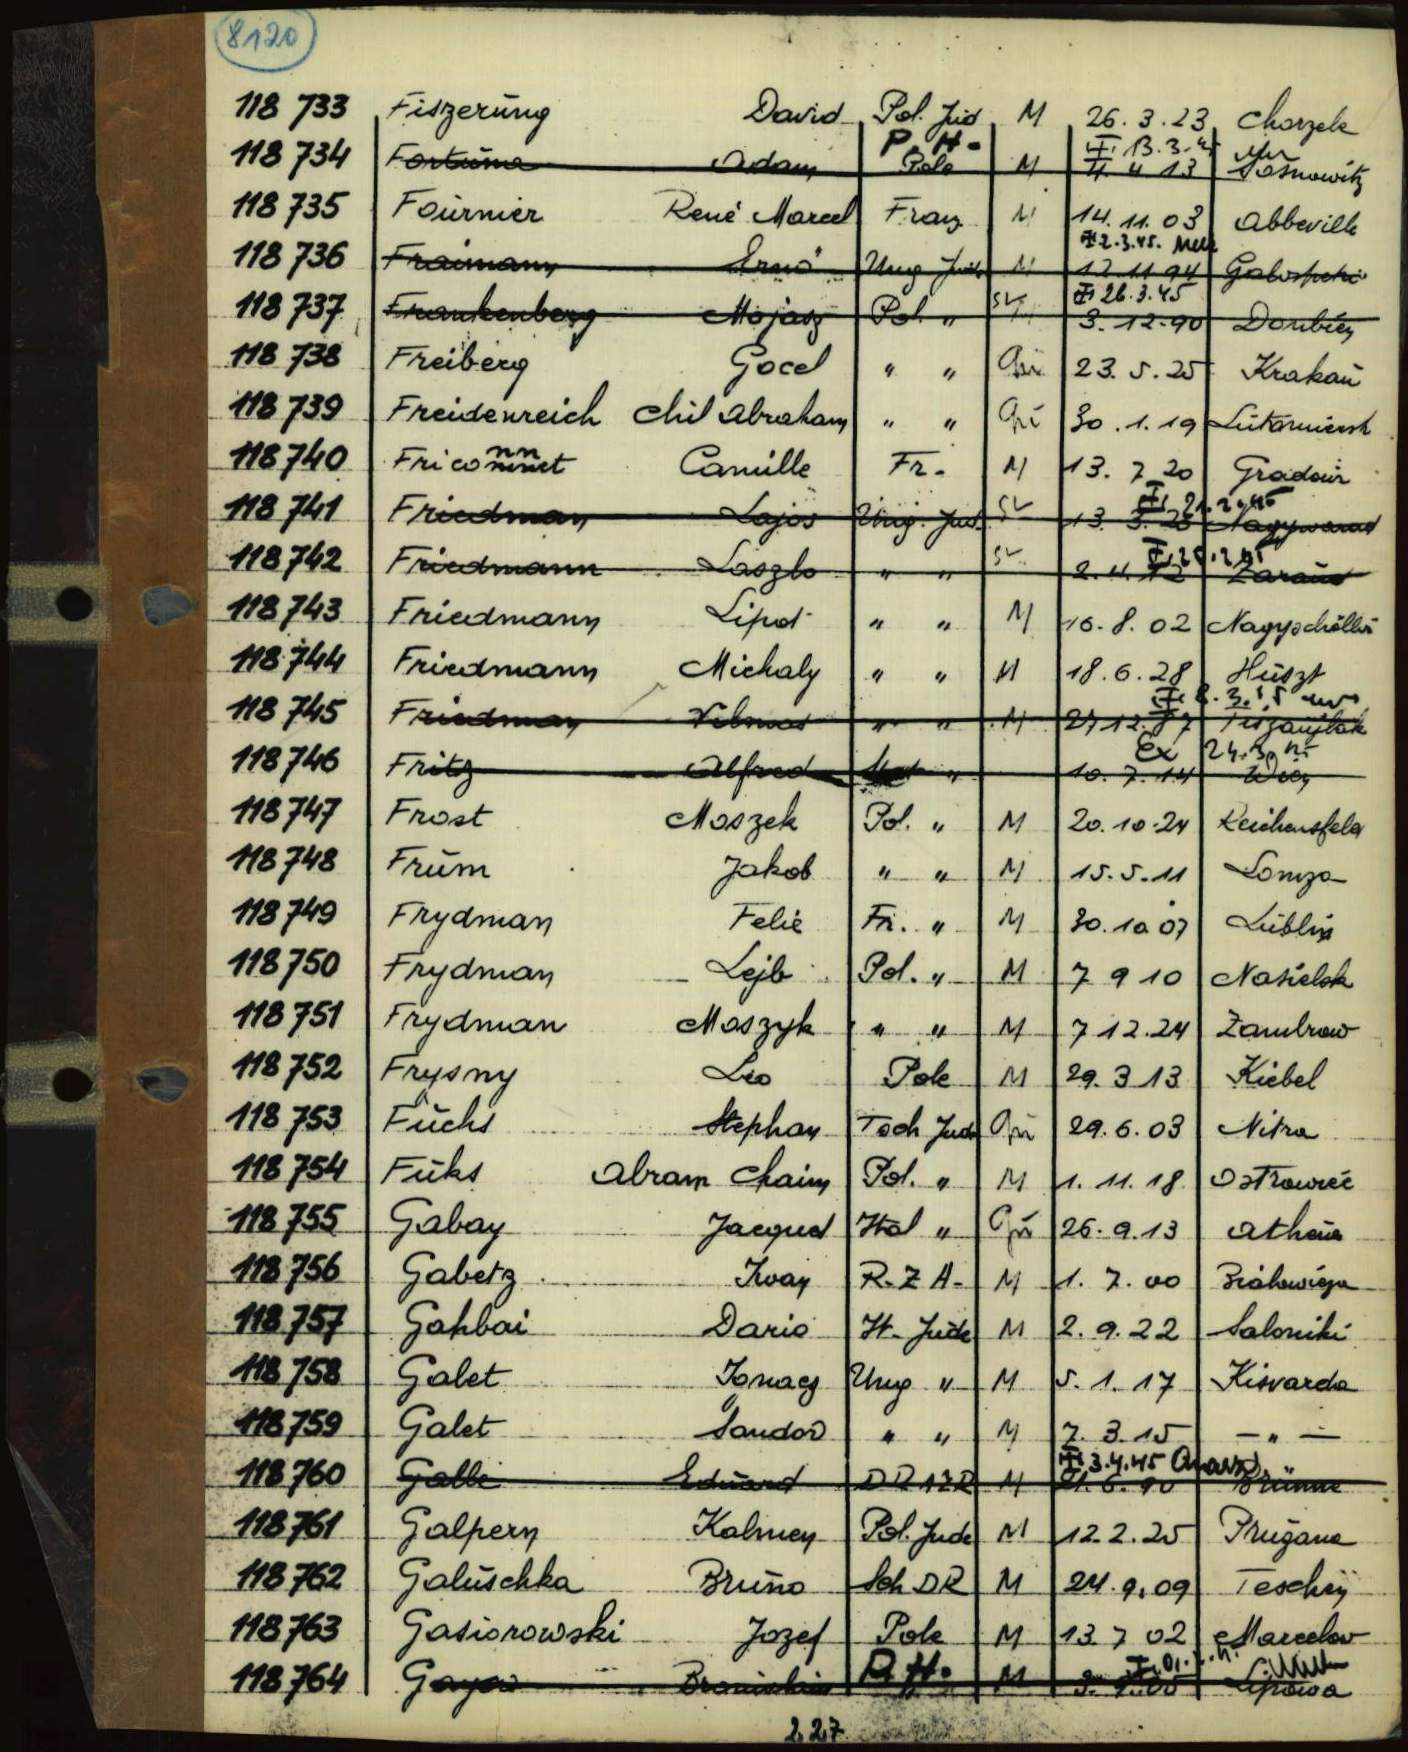 8120
118 733 Fiszerüng David Pol. Jud M 26.3.23 Chorzele
P. H.
118 734 Fortuna Adam Pole M 4 13 Sosnowitz
118 735 Fournier René Marcel Franz M 14.11.03 Abbeville
2.3.45.
118 736 Fraimann Ernö Ung Jude M 12 11 94
26.3.45
118 737 Frankenberg Mojasz Pol. " 3.12.90
118 738 Freiberg Gocel " " 23.5.25 Krakau
118 739 Freidenreich Chil Abraham " " 30.1.19 Lutomiersk
nn
118 740 Friconnet Camille Fr. M 13.7.20
118 741 Friedman Lajos Ung. Jud. 13. Nagywarad
118 742 Friedmann Laszlo " "
118 743 Friedmann Lipot " " M 16.8.02
118 744 Friedmann Michaly " " M 18.6.28 Huszt
118 745 Friedman " " M 27 12. Tiszaujlak
Ex
118 746 Fritz Alfred " 10.7.14 Wien
118 747 Frost Moszek Pol. " M 20.10.24
118 748 Früm Jakob " " M 15.5.11 Lomza
118 749 Frydman Felie Fr. " M 30.10.07 Lublin
118 750 Frydman Lejb Pol. " M 7 9 10 Nasielsk
118 751 Frydman Moszyk " " M 7 12.24 Zambrow
118 752 Frysny Leo Pole M 29.3 13 Kiebel
118 753 Füchs Stephan Tsch Jude 29.6.03 Nitra
118 754 Füks Abram Chaim Pol. " M 1.11.18 Ostrowiec
118 755 Gabay Jacques Ital " 26.9.13
118 756 Gabetz Iwan R.Z.A. M 1.7.00
118 757 Gahbai Dario It. Jude M 2.9.22 Saloniki
118 758 Galet Ignacz Ung " M 5.1.17 Kisvarda
118 759 Galet Sandor " " M 7.3.15 — " —
3.4.45
118 760 Galle Eduard M Brünne
118 761 Galpern Kalmen Pol. Jude M 12.2.25 Prużana
118 762 Galüschka Brüno Sch DR M 24.9.09 Teschen
118 763 Gasiorowski Jozef Pole M 13 7 02 Marcelow
118 764 " M Lipowa
227